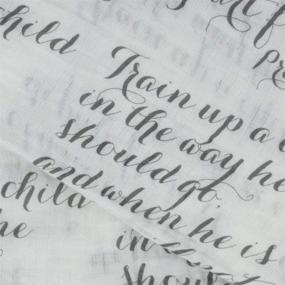 art f
child
pr
Train up a c
in the way he
should go,
and when he is
child
he
in
should